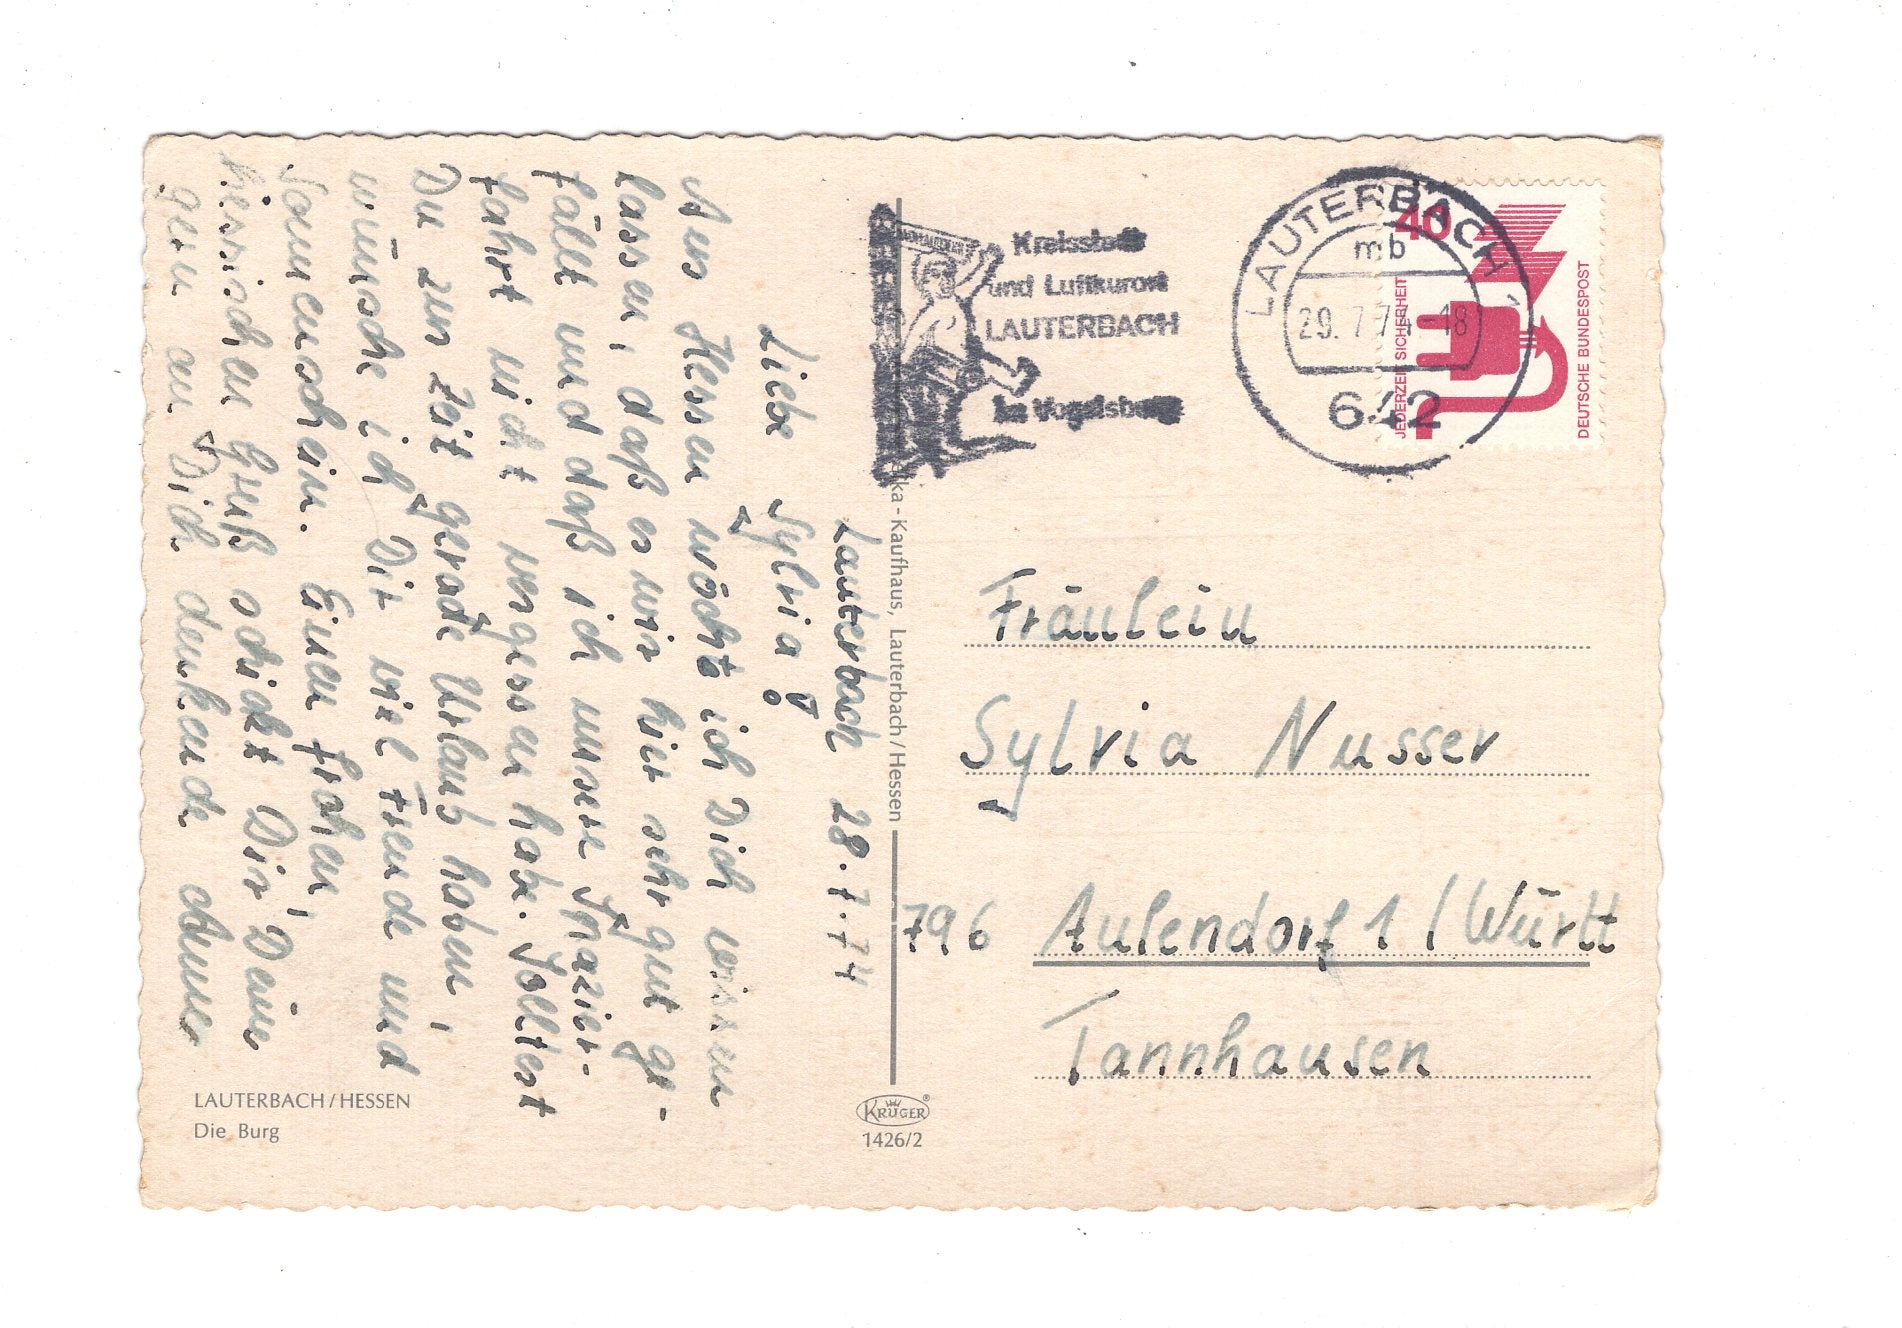 Lauterbach 28.7.74
Liebe Sylvia!
Aus Hessen möchte ich Dich wissen
lassen, daß es mir hier sehr gut ge-
fällt und daß ich unsere Spazier-
fahrt nicht vergessen habe. Solltest
Du zur Zeit gerade Urlaub haben,
wünsche ich Dir viel Freude und
Sonnenschein. Einen frohen,
hessischen Gruß schickt Dir Dein
gern an Dich denkende
LAUTERBACH/HESSEN
Die Burg
ka - Kaufhaus, Lauterbach/Hessen
KRÜGER®
1426/2
Kreisstadt
und Luftkurort
LAUTERBACH
im Vogelsberg
LAUTERBACH
mb
29.7.74-18
642
40
JEDERZEIT SICHERHEIT
DEUTSCHE BUNDESPOST
Fräulein
Sylvia Nusser
796 Aulendorf 1 / Württ
Tannhausen